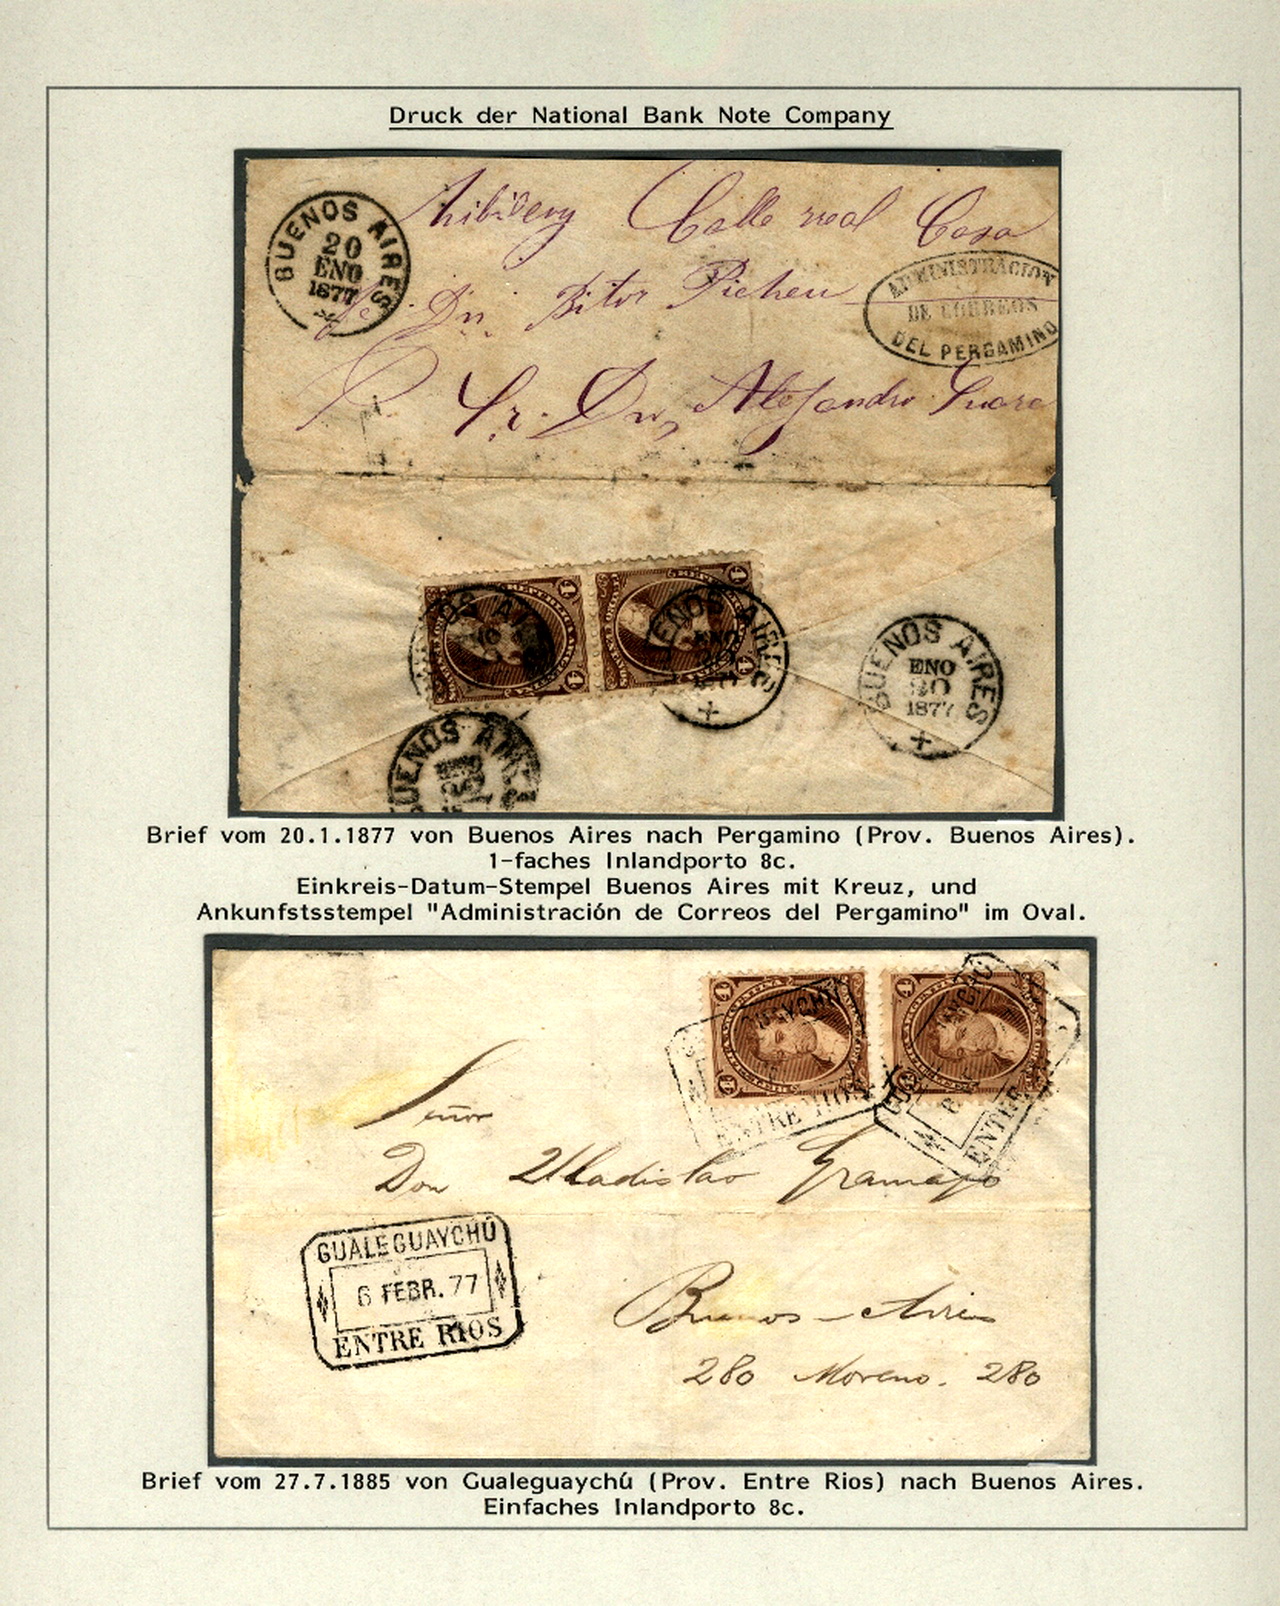 Druck der National Bank Note Company
BUENOS AIRES
20
ENO
1877
Calle real Casa
Dn. Bitor Picheu
ADMINISTRACION
DE CORREOS
DEL PERGAMINO
Sr. Dn, Alejandro
4 4
4 4
BUENOS AIRES
ENO
20
1877
BUENOS AIRES
ENO
20
1877
BUENOS AIRES
Brief vom 20.1.1877 von Buenos Aires nach Pergamino (Prov. Buenos Aires).
1-faches Inlandporto 8c.
Einkreis-Datum-Stempel Buenos Aires mit Kreuz, und
Ankunfstsstempel "Administración de Correos del Pergamino" im Oval.
4 4
4 4
GUALEGUAYCHÚ
ENTRE RIOS
ENTRE
Señor
Don Uladislao Gramajo
GUALEGUAYCHÚ
6 FEBR. 77
ENTRE RIOS
Buenos-Aires
280 Moreno. 280
Brief vom 27.7.1885 von Gualeguaychú (Prov. Entre Rios) nach Buenos Aires.
Einfaches Inlandporto 8c.